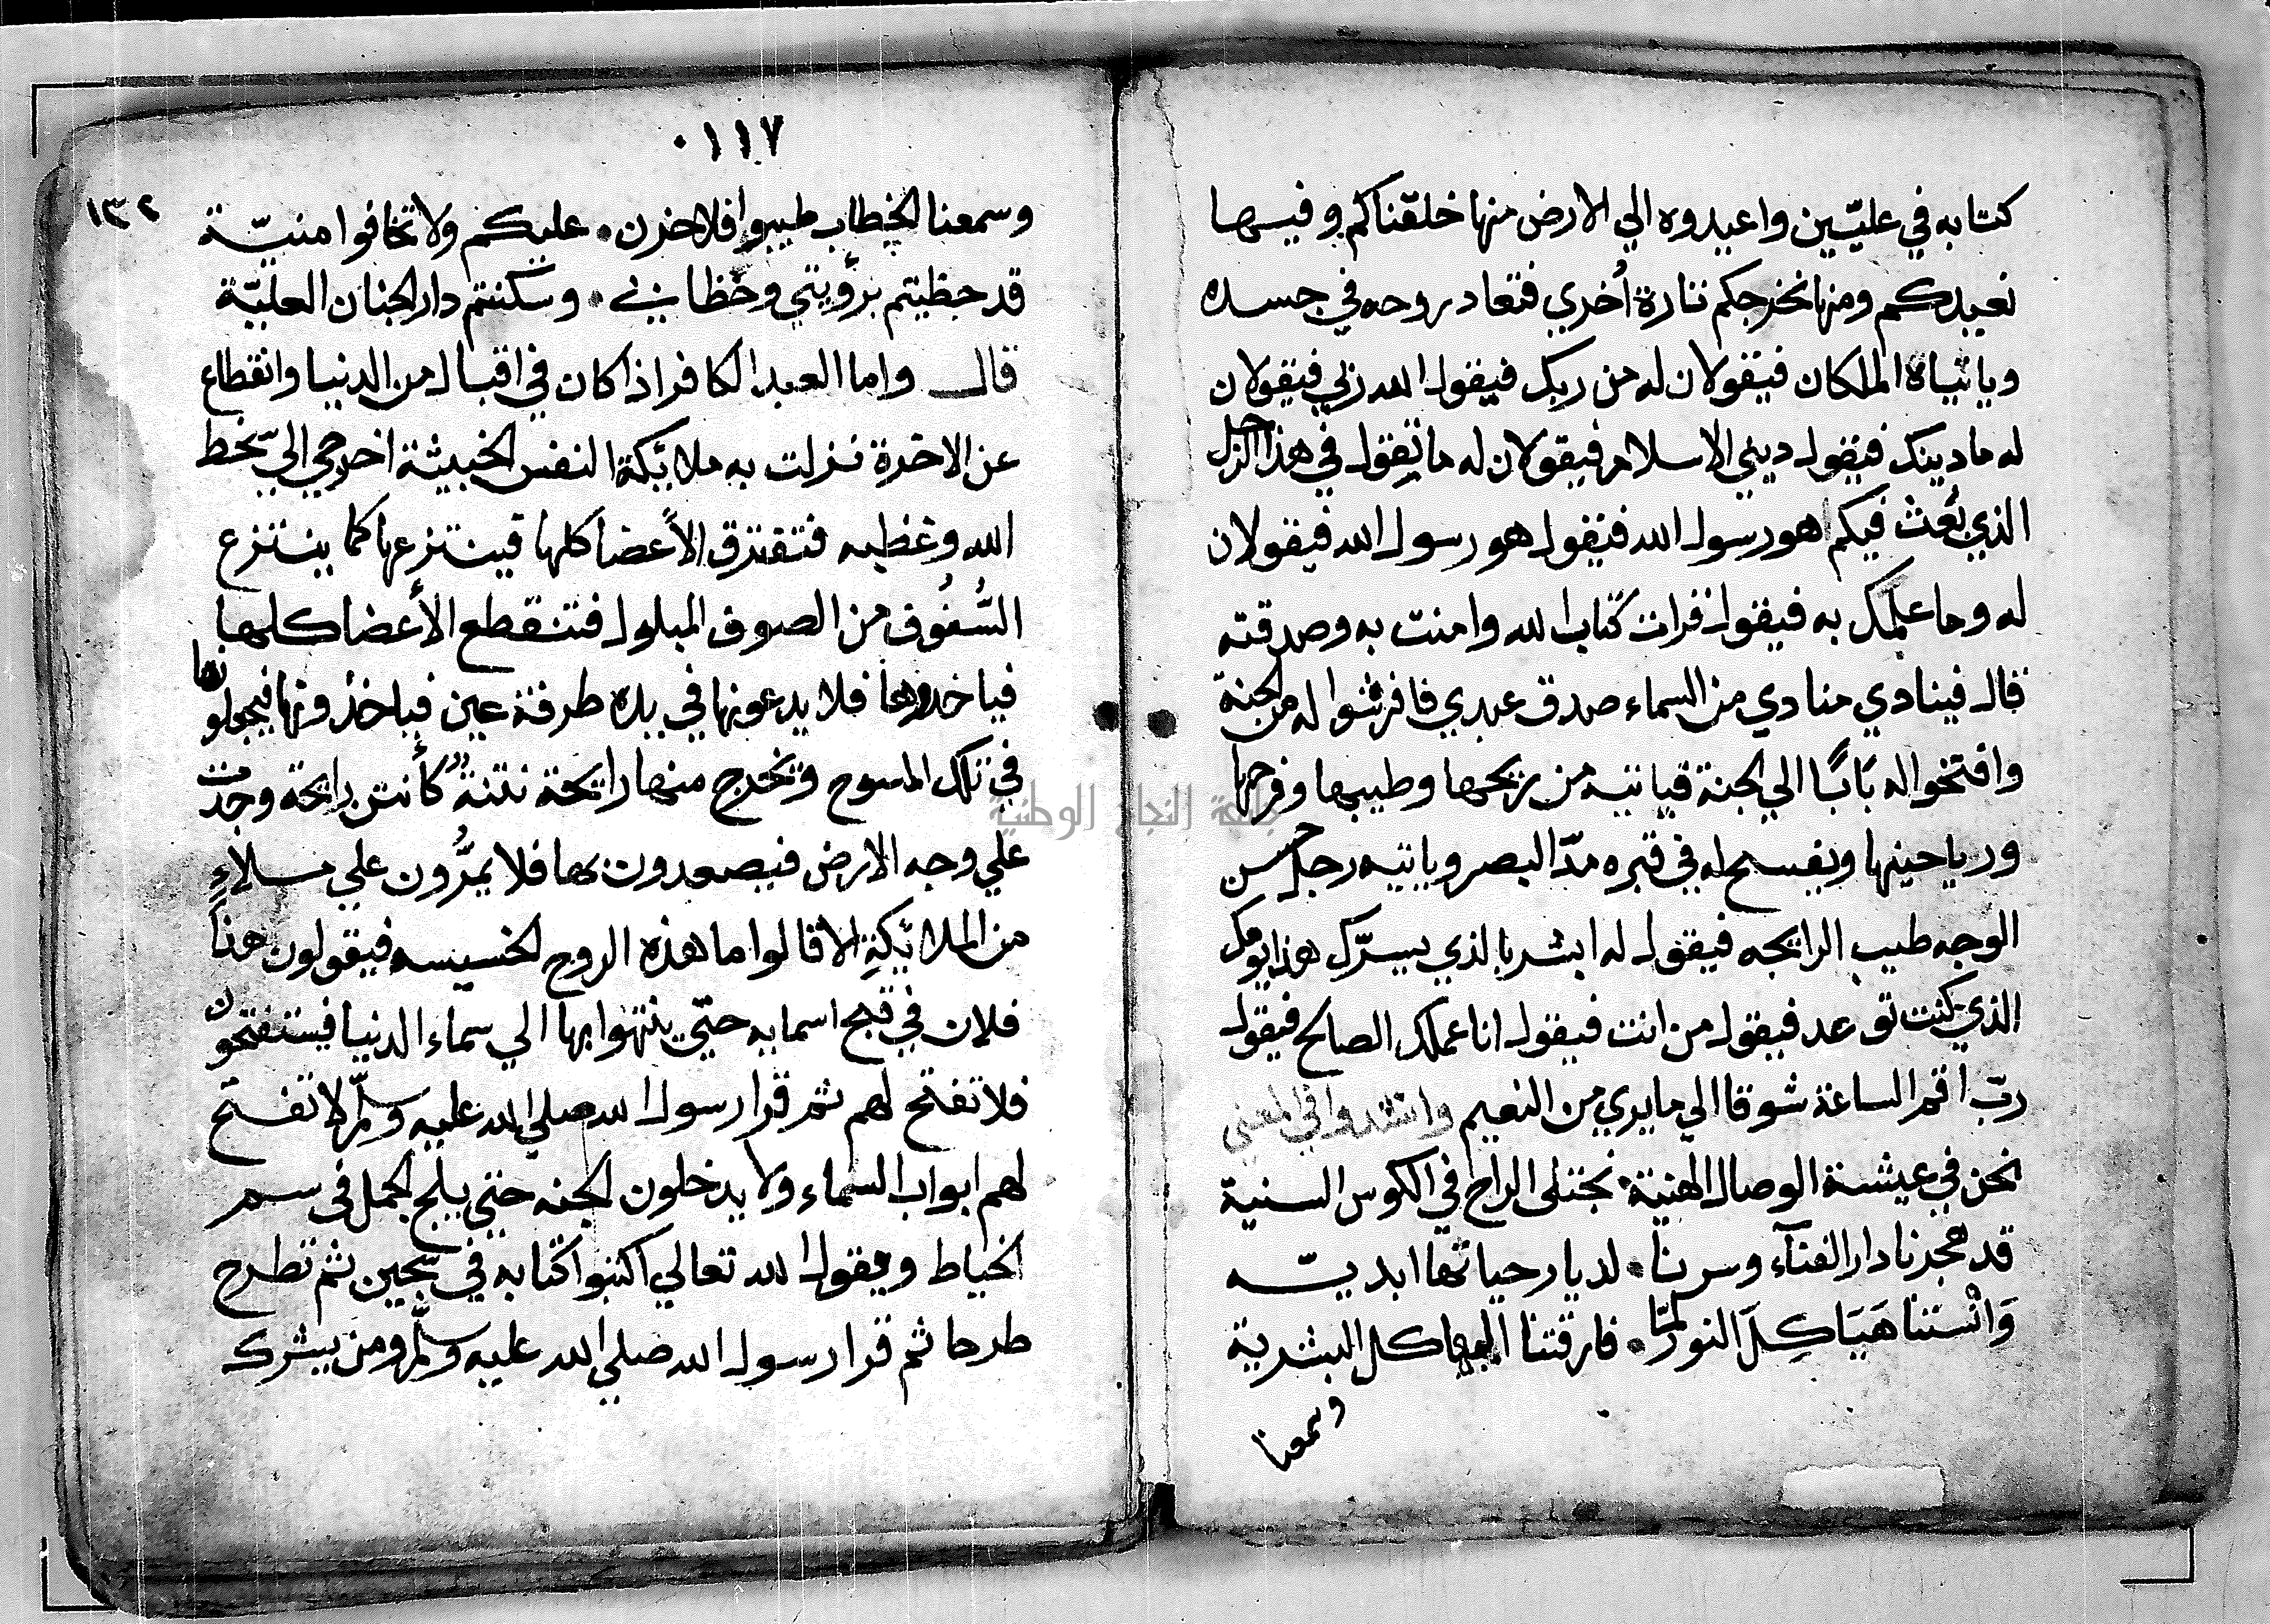 كتابه في عليّين واعيدوه الي الارض منها خلقناكم وفيها
نعيدكم ومنها نخرجكم تارة أخري فتعاد روحه في جسده
وياتياه الملكان فيقولان له من ربك فيقول الله ربي فيقولان
له ما دينك فيقول ديني الاسلام فيقولان له ما تقول في هذا الرجل
الذي بُعث فيكم اهو رسول الله فيقول هو رسول الله فيقولان
له وما علمك به فيقول قرات كتاب الله وامنت به وصدقته
قال فينادي منادي من السماء صدق عبدي فافرشوا له من الجنة
وافتحوا له بَابًا الي الجنة فياتيه من ريحها وطيبها وفرحها
ورياحينها ويفسح له في قبره مدّ البصر وياتيه رجل حسن
الوجه طيب الرايحه فيقول له ابشر بالذي يسرّك هذا يومك
الذي كنت توعد فيقول من انت فيقول انا عملك الصالح فيقول
ربّ اقم الساعة شوقا الي ما يري من النعيم وانشدوا في المعني
نحن في عيشة الوصال الهنية • نجتلى الراح في الكوس السنية
قد هجرنا دار الفنآء وسرنا • لديار حياتها ابديّه
وَانْستنا هَيَاكِلَ النور لمّا • فارقتنا الهياكل البشرية
وسمعنا
٠١١٧
١٣٢
وسمعنا الخطاب طيبوا فلا حزن • عليكم ولا تخافوا منيّة
قد حظيتم برؤيتي وخطابي • وسكنتم دار الجنان العليّة
قال واما العبد الكافر اذا كان في اقبال من الدنيا وانقطاع
عن الاخرة نزلت به ملايكة النفس الخبيثة اخرجي الي سخط
الله وغظبه فتفترق الأعضا كلها فينتزعها كما ينتزع
السُّفُوف من الصوف المبلول فتنقطع الأعضا كلها
فياخدوها فلا يدعونها في يده طرفة عين فياخذونها فيجعلونها
في تلك المسوح وتخرج منها رايحة نتنة كأنتن رايحة وجدت
علي وجه الارض فيصعدون بها فلا يمرُّون علي ملاءٍ
من الملايكةِ الا قالوا ما هذه الروح الخسيسه فيقولون هذا
فلان في قبح اسمايه حتي ينتهوا بها الي سماء الدنيا فيستفتحون
فلا تفتح لهم ثم قرا رسول الله صلي الله عليه وسلم لا تفتح
لهم ابواب السماء ولا يدخلون الجنه حتي يلج الجمل فى سم
الخياط ويقول الله تعالي اكتبوا كتابه في سجين ثم تطرح
طرحا ثم قرا رسول الله صلي الله عليه وسلم ومن يشرك
جامعة النجاح الوطنية